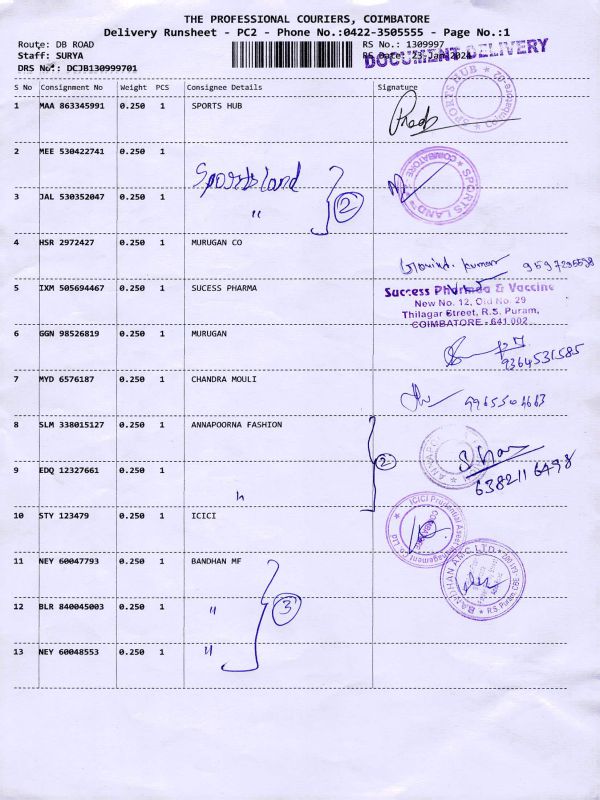 THE PROFESSIONAL COURIERS, COIMBATORE
Delivery Runsheet - PC2 - Phone No.:0422-3505555 - Page No.:1
Route: DB ROAD RS No.: 1309997
Staff: SURYA RS Date: 23-Jan-2024
DOCUMENT DELIVERY
DRS No.: DCJB130999701
S No Consignment No Weight PCS Consignee Details Signature
1 MAA 863345991 0.250 1 SPORTS HUB
SPORTS HUB
2 MEE 530422741 0.250 1
Sportsland
COIMBATORE SPORTS LAND
3 JAL 530352047 0.250 1 " 2
4 HSR 2972427 0.250 1 MURUGAN CO
Govind. kumar
5 IXM 505694467 0.250 1 SUCESS PHARMA
Success Pharma & Vaccine
New No. 12, Old No. 29
Thilagar Street, R.S. Puram,
COIMBATORE - 641 002
6 GGN 98526819 0.250 1 MURUGAN
9364531585
7 MYD 6576187 0.250 1 CHANDRA MOULI
8 SLM 338015127 0.250 1 ANNAPOORNA FASHION
2
9 EDQ 12327661 0.250 1 "
6382116498
10 STY 123479 0.250 1 ICICI
ICICI Prudential Asset Management Co Ltd
11 NEY 60047793 0.250 1 BANDHAN MF
BANDHAN AMC LTD
R.S. Puram, CBE
12 BLR 840045003 0.250 1 " 3
13 NEY 60048553 0.250 1 "